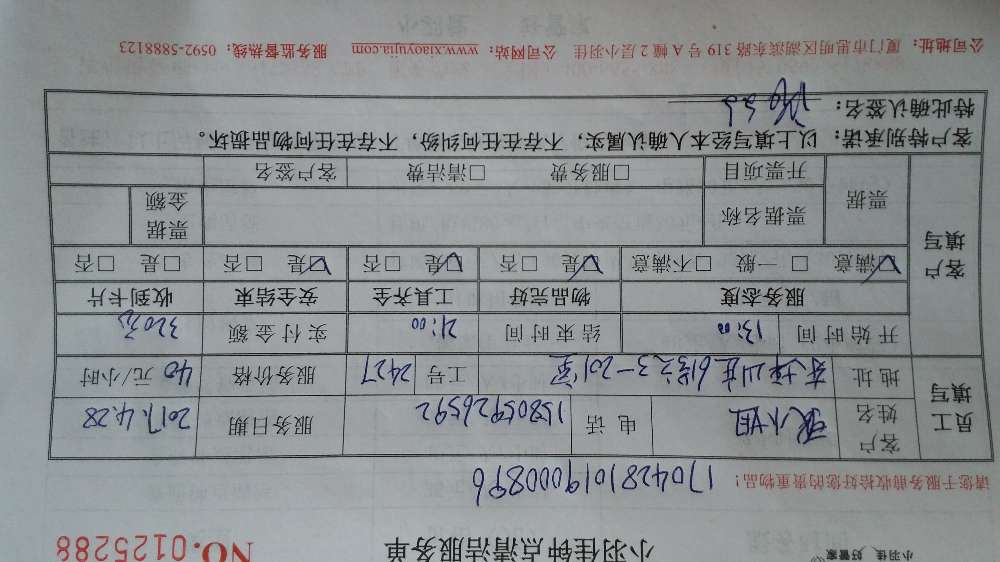 小羽佳 好管家
小羽佳钟点清洁服务单 NO.0125288
请您于服务前收拾好您的贵重物品! 1704281019000896
员工填写 客户姓名 张小姐 电话 15805926592 服务日期 2017.4.28
地址 东坪山庄61号之3-201室 工号 2427 服务价格 40 元/小时
开始时间 13:00 结束时间 21:00 实付金额 320元
客户填写 服务态度 物品完好 工具齐全 安全结束 收到卡片
☑满意 □一般 □不满意 ☑是 □否 ☑是 □否 ☑是 □否 □是 □否
票据 票据名称 票据金额
开票项目 □服务费 □清洁费 客户签名
客户特别承诺:以上填写经本人确认属实,不存在任何纠纷,不存在任何物品损坏。
特此确认签名:
公司地址:厦门市思明区湖滨东路 319 号 A 幢 2 层小羽佳 公司网站:www.xiaoyujia.com 服务监督热线:0592-5888123